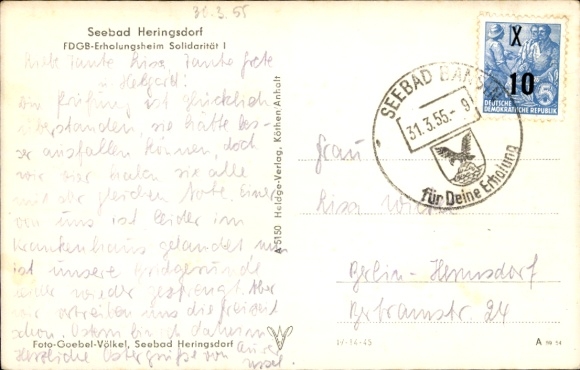 30.3.55
Seebad Heringsdorf
FDGB-Erholungsheim Solidarität I
Liebe Tante Lisa, Tante Grete
u. Helgard!
Die Prüfung ist glücklich
überstanden, sie hätte bes-
ser ausfallen können, doch
wir vier haben sie alle
mit der gleichen Note. Einer
von uns ist leider im
Krankenhaus gelandet nun
ist unsere Bridgerunde
leider wieder gesprengt. Aber
wir vertreiben uns die Freizeit
schon. Ostern bin ich daheim
Herzliche Ostergrüße von
Foto-Goebel-Völkel, Seebad Heringsdorf
A 5150 Heldge-Verlag, Köthen/Anhalt
X
10
5
DEUTSCHE
DEMOKRATISCHE REPUBLIK
SEEBAD BANSIN
31.3.55.-9
für Deine Erholung
Frau
Lisa
Berlin-Hermsdorf
Bertramstr. 24
IV-14-45
A